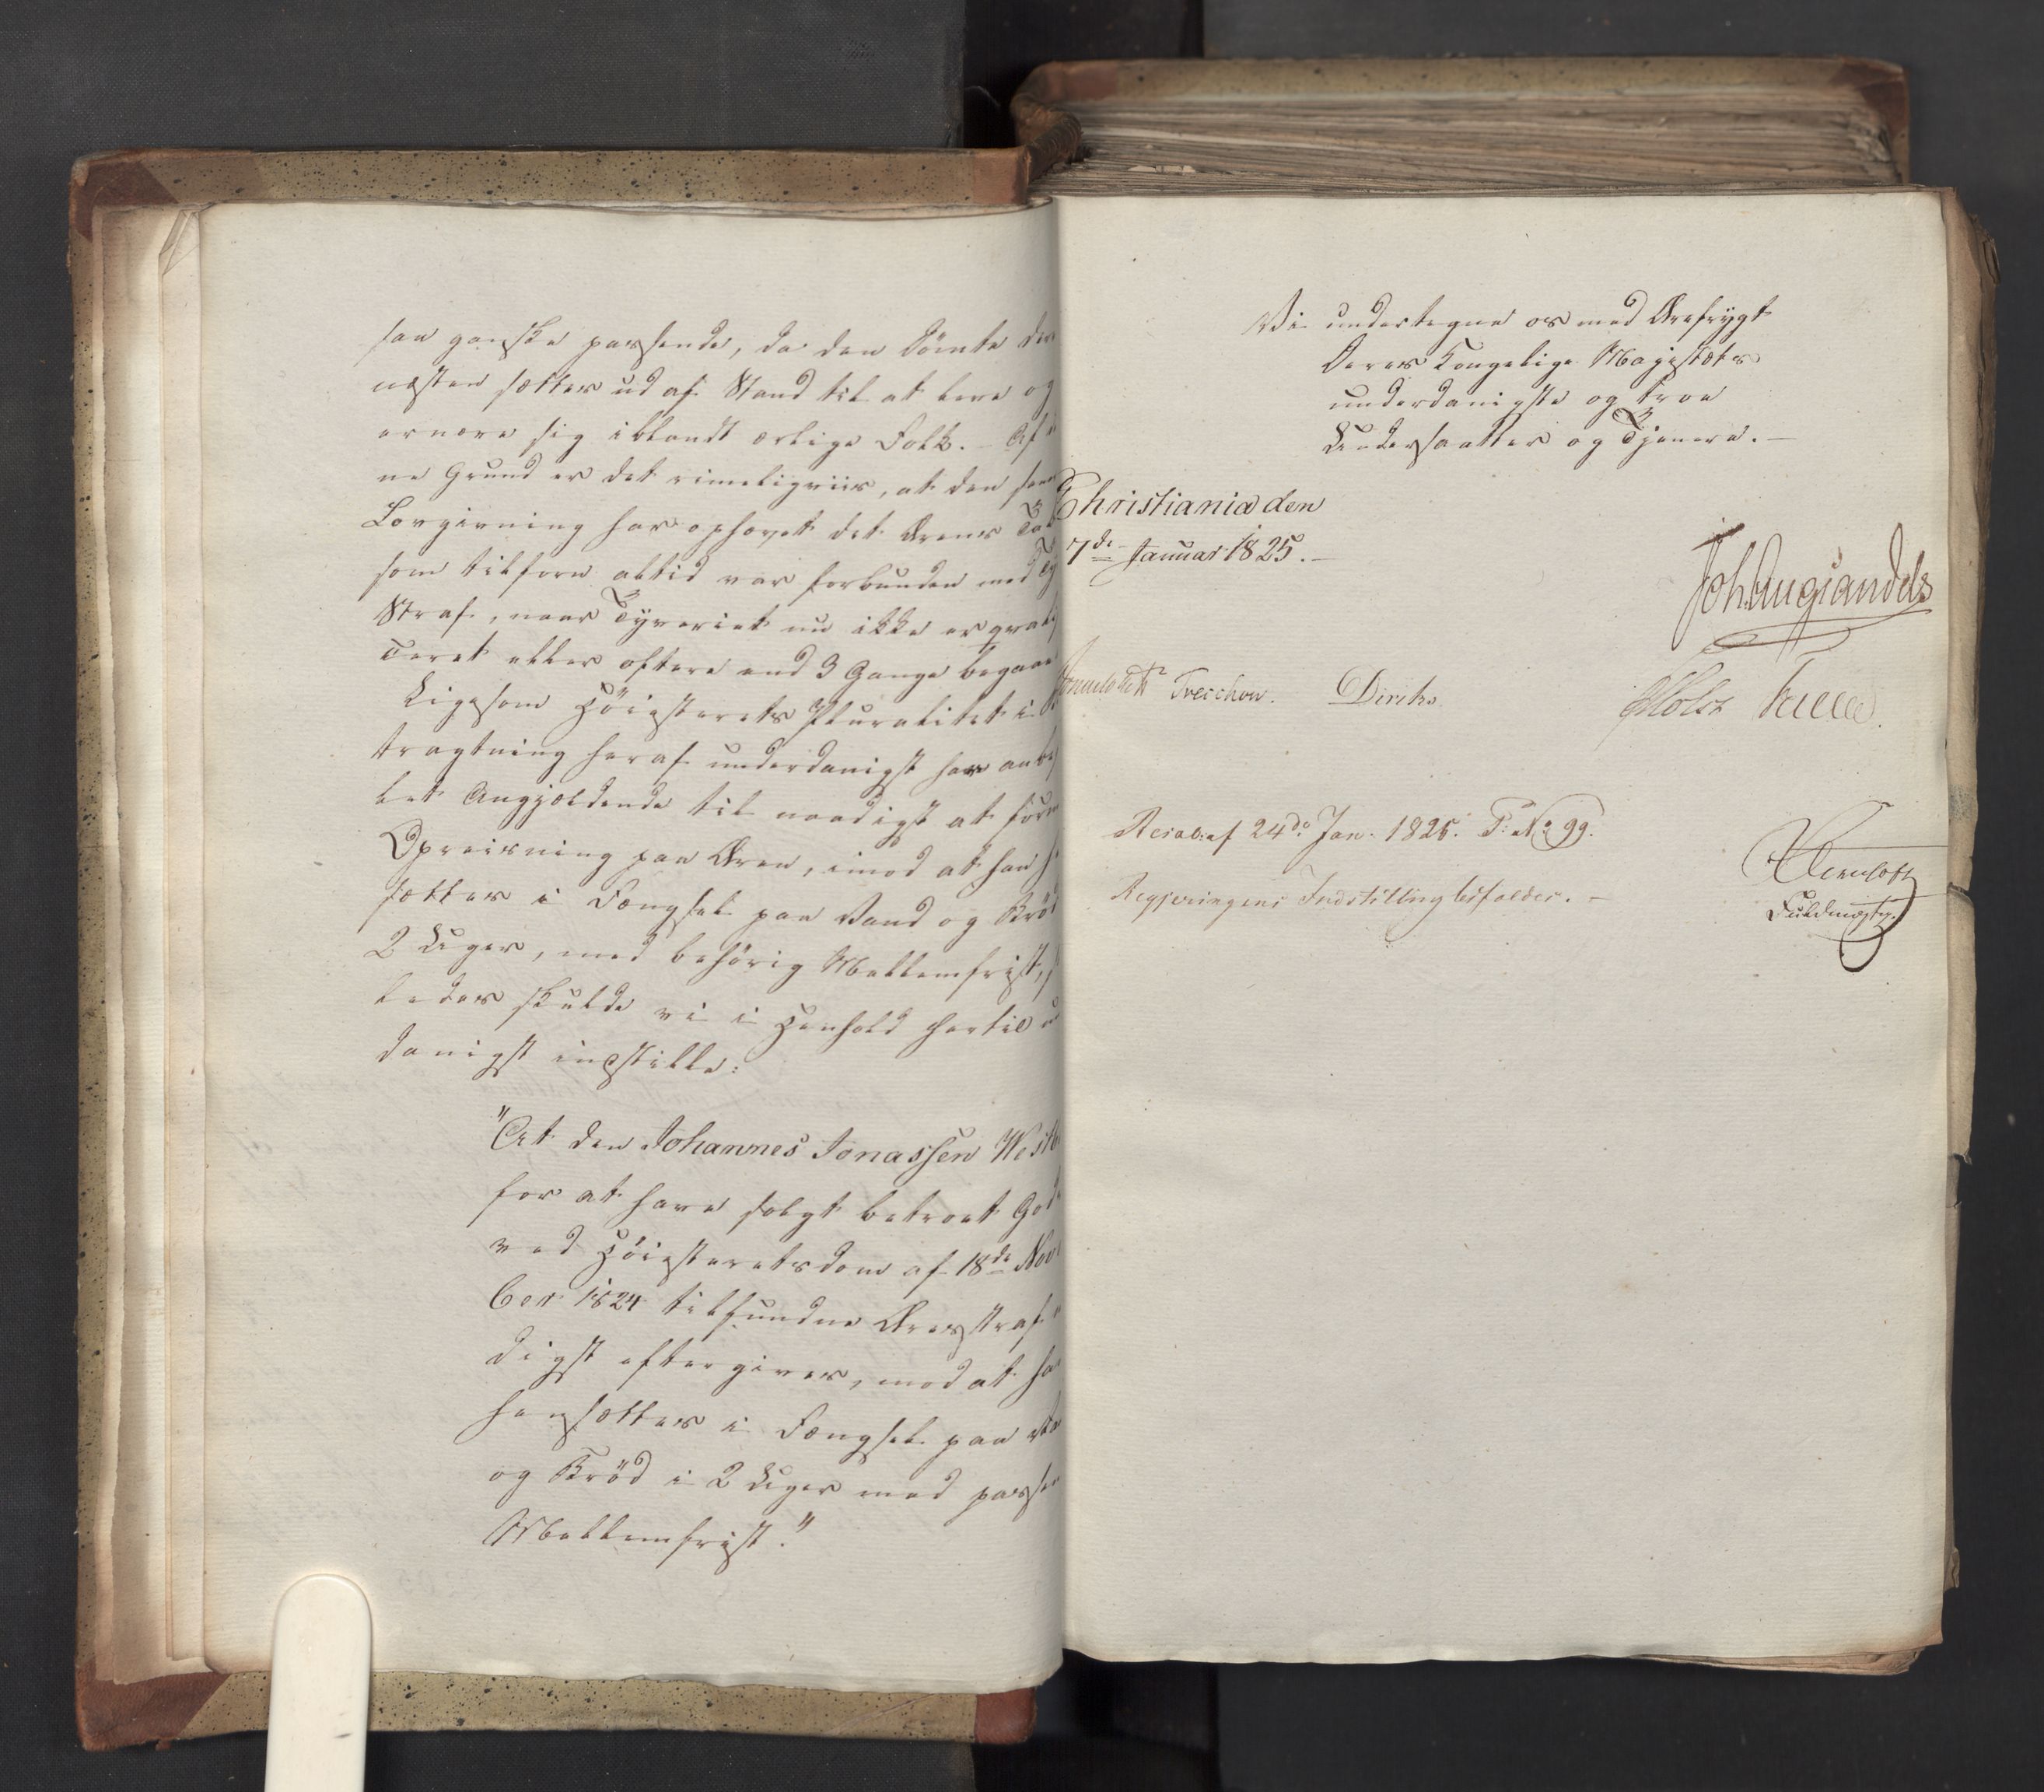 saa ganske passende, da den Dömte der
næsten sættes ud af Stand til at leve og
ernære sig iblandt ærlige Folk. – Af
ne Grund er det rimeligviis, at den sen
Lovgivning har ophævet det Ærens Tab
som tilforn altid var forbunden med Ty
Straf, naar Tyveriet nu ikke er qvali
ceret eller oftere end 3 Gange begaae
Ligesom Höiesterets Pluralitet i
tragtning heraf underdanigst har anbe
let Angjældende til naadigst at
Opreisning paa Æren, imod at han
sættes i Fængsel paa Vand og Bröd
2 Uger, med behörig Mellemfrist,
ledes skulde vi i Henhold hertil
danigst indstille:
"At den Johannes Jonassen West
for at have solgt betroet God
ved Höiesteretsdom af 18de Nov
ber 1824 tilfundne Æresstraf
digst eftergives, mod at ha
hensættes i Fængsel paa Va
og Bröd i 2 Uger med passe
Mellemfrist."
Vi undertegne os med Ærefrygt
Deres Kongelige Majestæts
underdanigste og troe
Undersaatter og Tjenere. –
Christiania den
7de Januar 1825. –
Joh Aug Sandels
Treschow. Diriks
Motzfeldt
Resol: af 24de Jan. 1825. P: No 99.
Regjeringens Indstilling bifaldes. –
Fuldmægtig